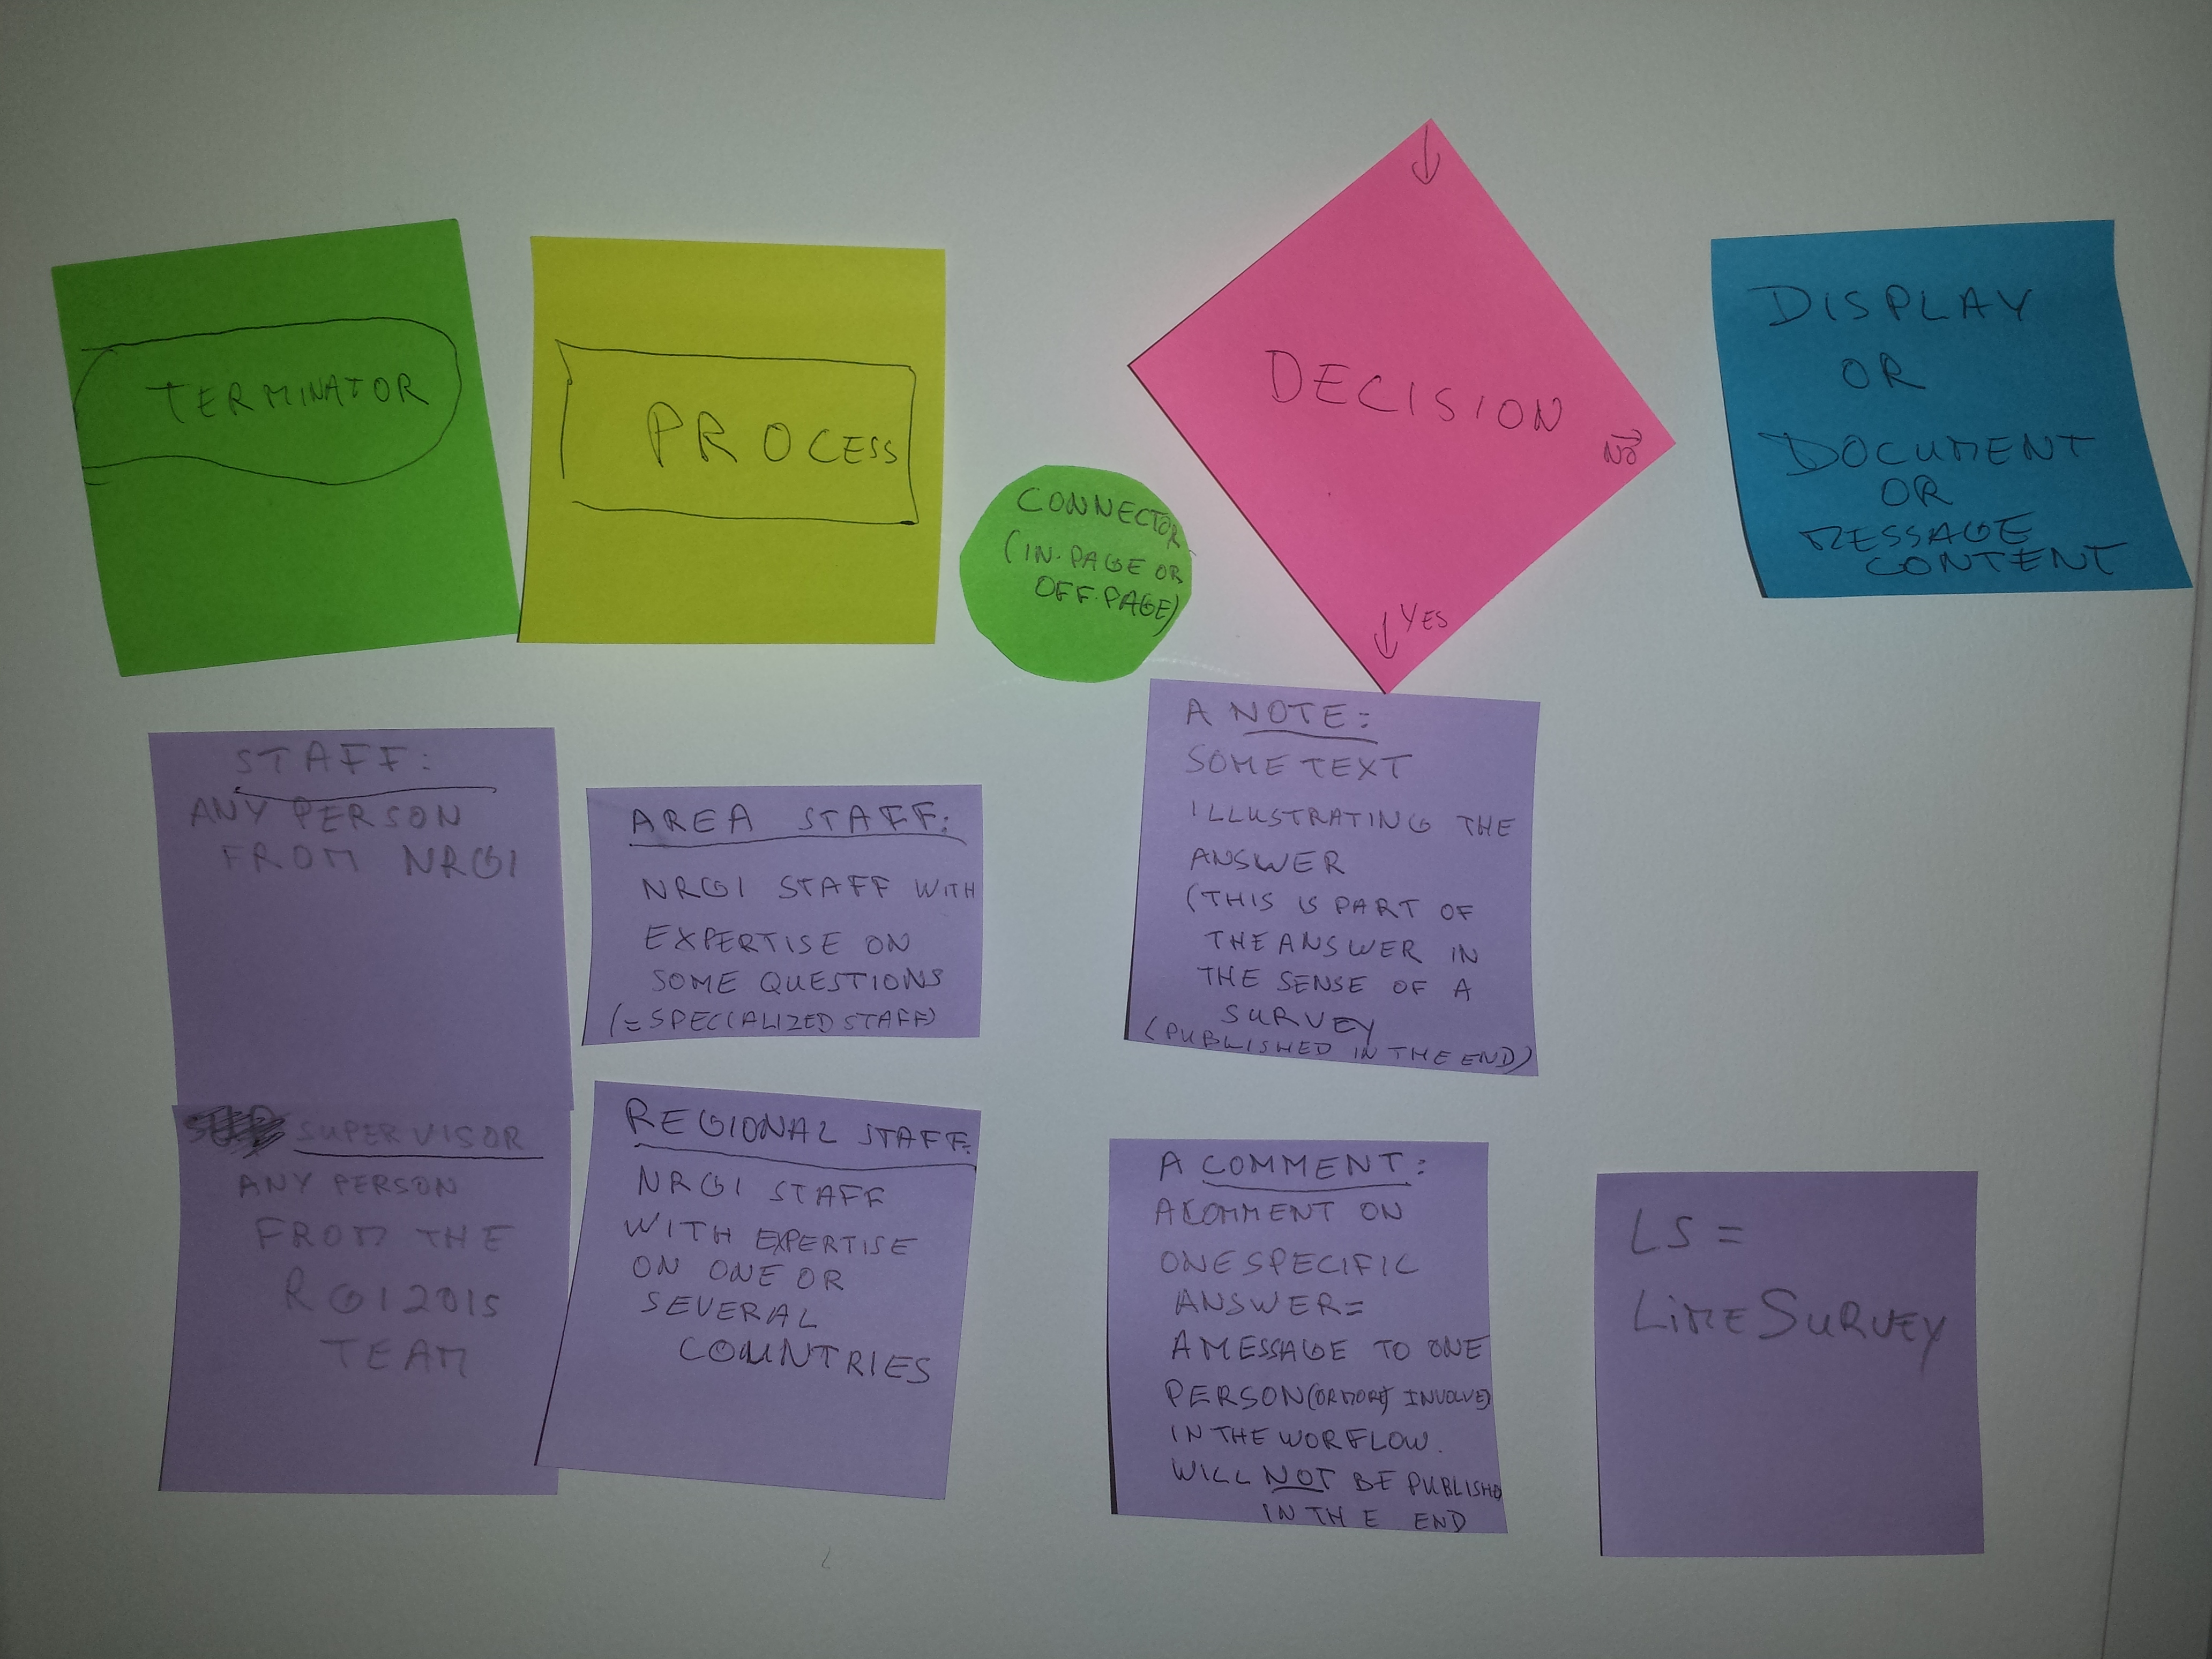 TERMINATOR
PROCESS
CONNECTOR
(IN-PAGE OR
OFF-PAGE)
DECISION
NO
YES
DISPLAY
OR
DOCUMENT
OR
MESSAGE
CONTENT
STAFF:
ANY PERSON
FROM NRGI
AREA STAFF:
NRGI STAFF WITH
EXPERTISE ON
SOME QUESTIONS
(=SPECIALIZED STAFF)
A NOTE:
SOME TEXT
ILLUSTRATING THE
ANSWER
(THIS IS PART OF
THE ANSWER IN
THE SENSE OF A
SURVEY
(PUBLISHED IN THE END)
SUPERVISOR
ANY PERSON
FROM THE
RGI2015
TEAM
REGIONAL STAFF:
NRGI STAFF
WITH EXPERTISE
ON ONE OR
SEVERAL
COUNTRIES
A COMMENT:
A COMMENT ON
ONE SPECIFIC
ANSWER=
A MESSAGE TO ONE
PERSON (OR MORE) INVOLVE)
IN THE WORFLOW.
WILL NOT BE PUBLISHD
IN THE END
LS =
LimeSURVEY